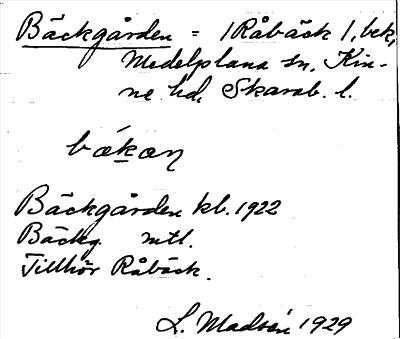 Bäckgården = /Råbäck 1, bek,
Medelplana sn, Kin-
ne hd, Skarab. l.
båkan
Bäckgården kb. 1922
Bäckg. mtl.
Tillhör Råbäck.
L. Madsén 1929